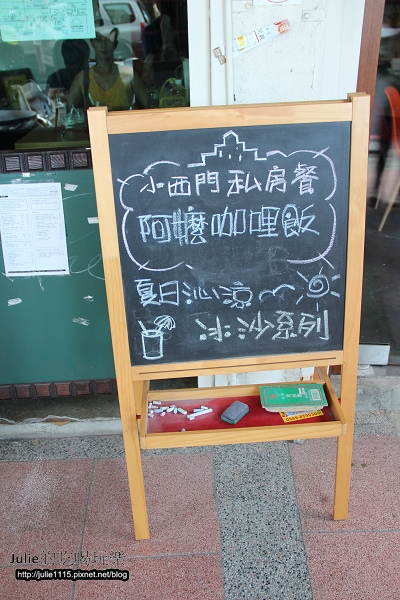 小西門 私房餐
阿嬤咖哩飯
夏日沁涼
Julie的吃喝玩樂
http://julie1115.pixnet.net/blog